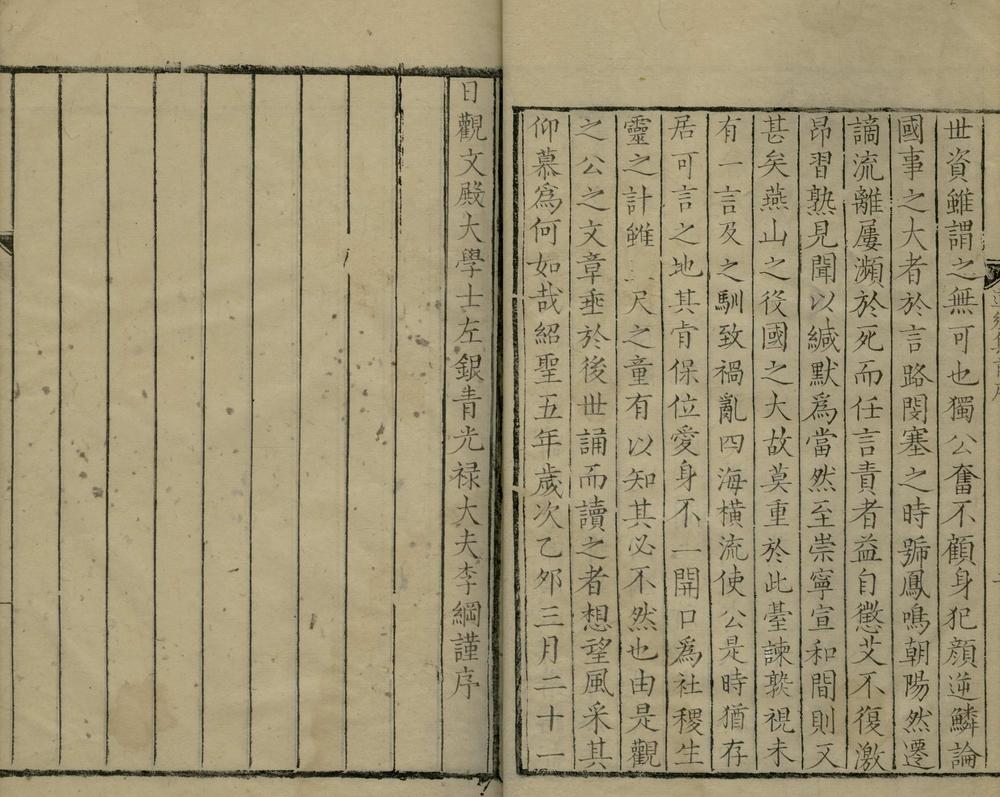 世資雖謂之無可也獨公奮不顧身犯顔逆鱗論
國事之大者於言路閔塞之時號鳳鳴朝陽然遷
謫流離屢瀕於死而任言責者益自懲艾不復激
昂習熟見聞以緘默爲當然至崇寧宣和間則又
甚矣燕山之役國之大故莫重於此臺諫熟視未
有一言及之馴致禍亂四海橫流使公是時猶存
居可言之地其肯保位愛身不一開口爲社稷生
靈之計雖尺之童有以知其必不然也由是觀
之公之文章垂於後世誦而讀之者想望風采其
仰慕爲何如哉紹聖五年歲次乙夘三月二十一
日觀文殿大學士左銀青光禄大夫李綱謹序